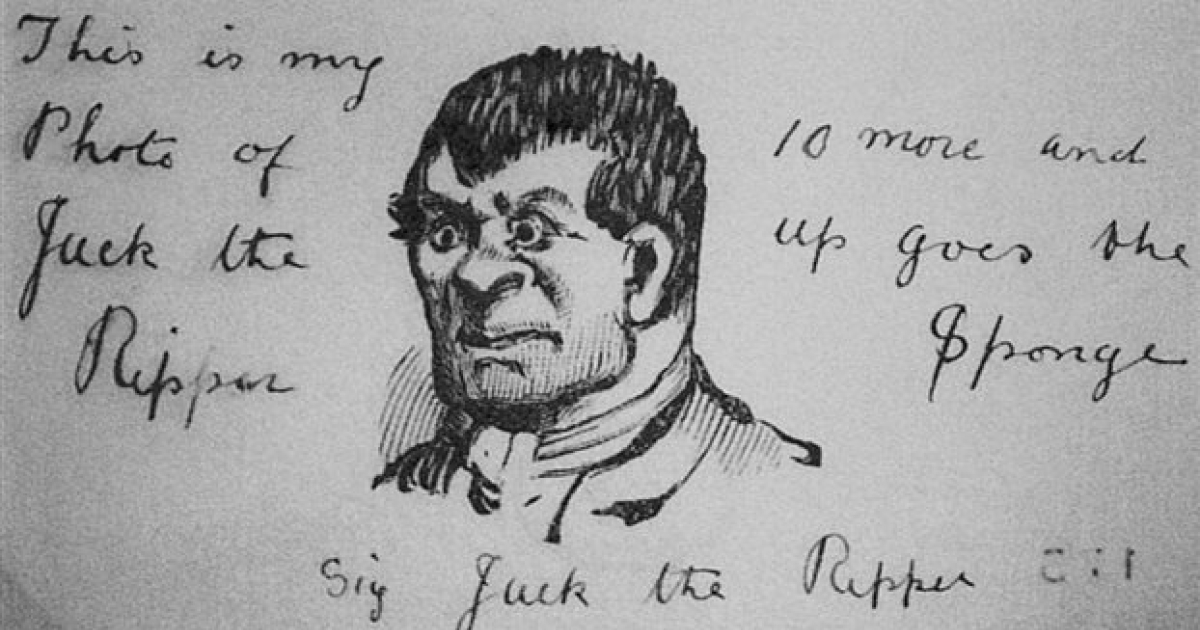 This is my
Photo of
Jack the
Ripper
10 more and
up goes the
Sponge
Sig Jack the Ripper